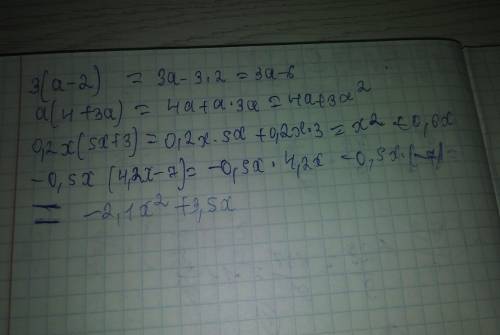 3(a-2) = 3a-3·2 = 3a-6
a(4+3a) = 4a+a·3a=4a+3a²
0,2x(5x+3)=0,2x·5x+0,2x·3=x²+0,6x
-0,5x (4,2x-7)=-0,5x·4,2x-0,5x·(-7)=
= -2,1x²+3,5x